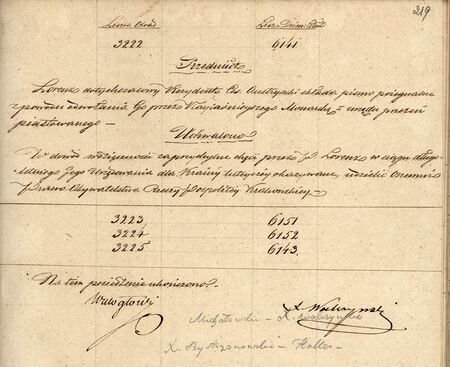 219
Liczba Obrad Licz. Dzien. Głów.
3222 6141
Przedmiot
Lorenz dotychczasowy Rezydent Ces. Austryacki składa pismo pożegnalne
z powodu odwołania Go przez Najjaśniejszego Monarchę z urzędu przezeń
piastowanego –
Uchwalono
W dowód wdzięczności za przychylne chęci przez P. Lorenz w ciągu długo
letniego Jego Urzędowania dla Krainy tutejszej okazywane, udzielić onemuż
Prawo Obywatelstwa Rzeczypospolitej Krakowskiej –
3223 6151
3224 6152
3225 6143
Na tem posiedzenie ukończono. –
X. Walczyński
Michałowski – X. Walczyński
X. Bystrzonowski – Haller –